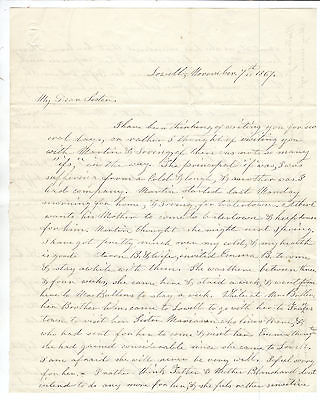 Lowell, November 7th, 1867.
My Dear Sister,
I have been thinking of writing you for sev
eral days, or rather, I thought of writing you
with Martin & Lovina, if there was not so many
"ifs," in the way. The principal if was, I was
suffering from a Cold & Cough, & another was I
had company. Martin started last Monday
morning for home, & Lovina for Watertown.
wants his Mother to come to Watertown & keep house
for him, Martin thought she might next Spring.
I have got pretty much over my cold, & my health
is good. Aaron B. & wife, invited Emma B. to come
& stay awhile with them. She was there between three
& four weeks, she came here & staid a week, & went from
here to Mrs Butlers to stay a week. While at Mrs Butlers,
her Brother Blanchard came to Lowell to go with her to
town to visit her Sister who lives there, &
who had sent for her to come, & visit her. Emma thought
she had gained considerable since she came to Lowell.
I am afraid she will never be very well. I feel sorry
for her, & I rather think Father & Mother Blanchard don't
intend to do any more for her, & she feels rather sensitive